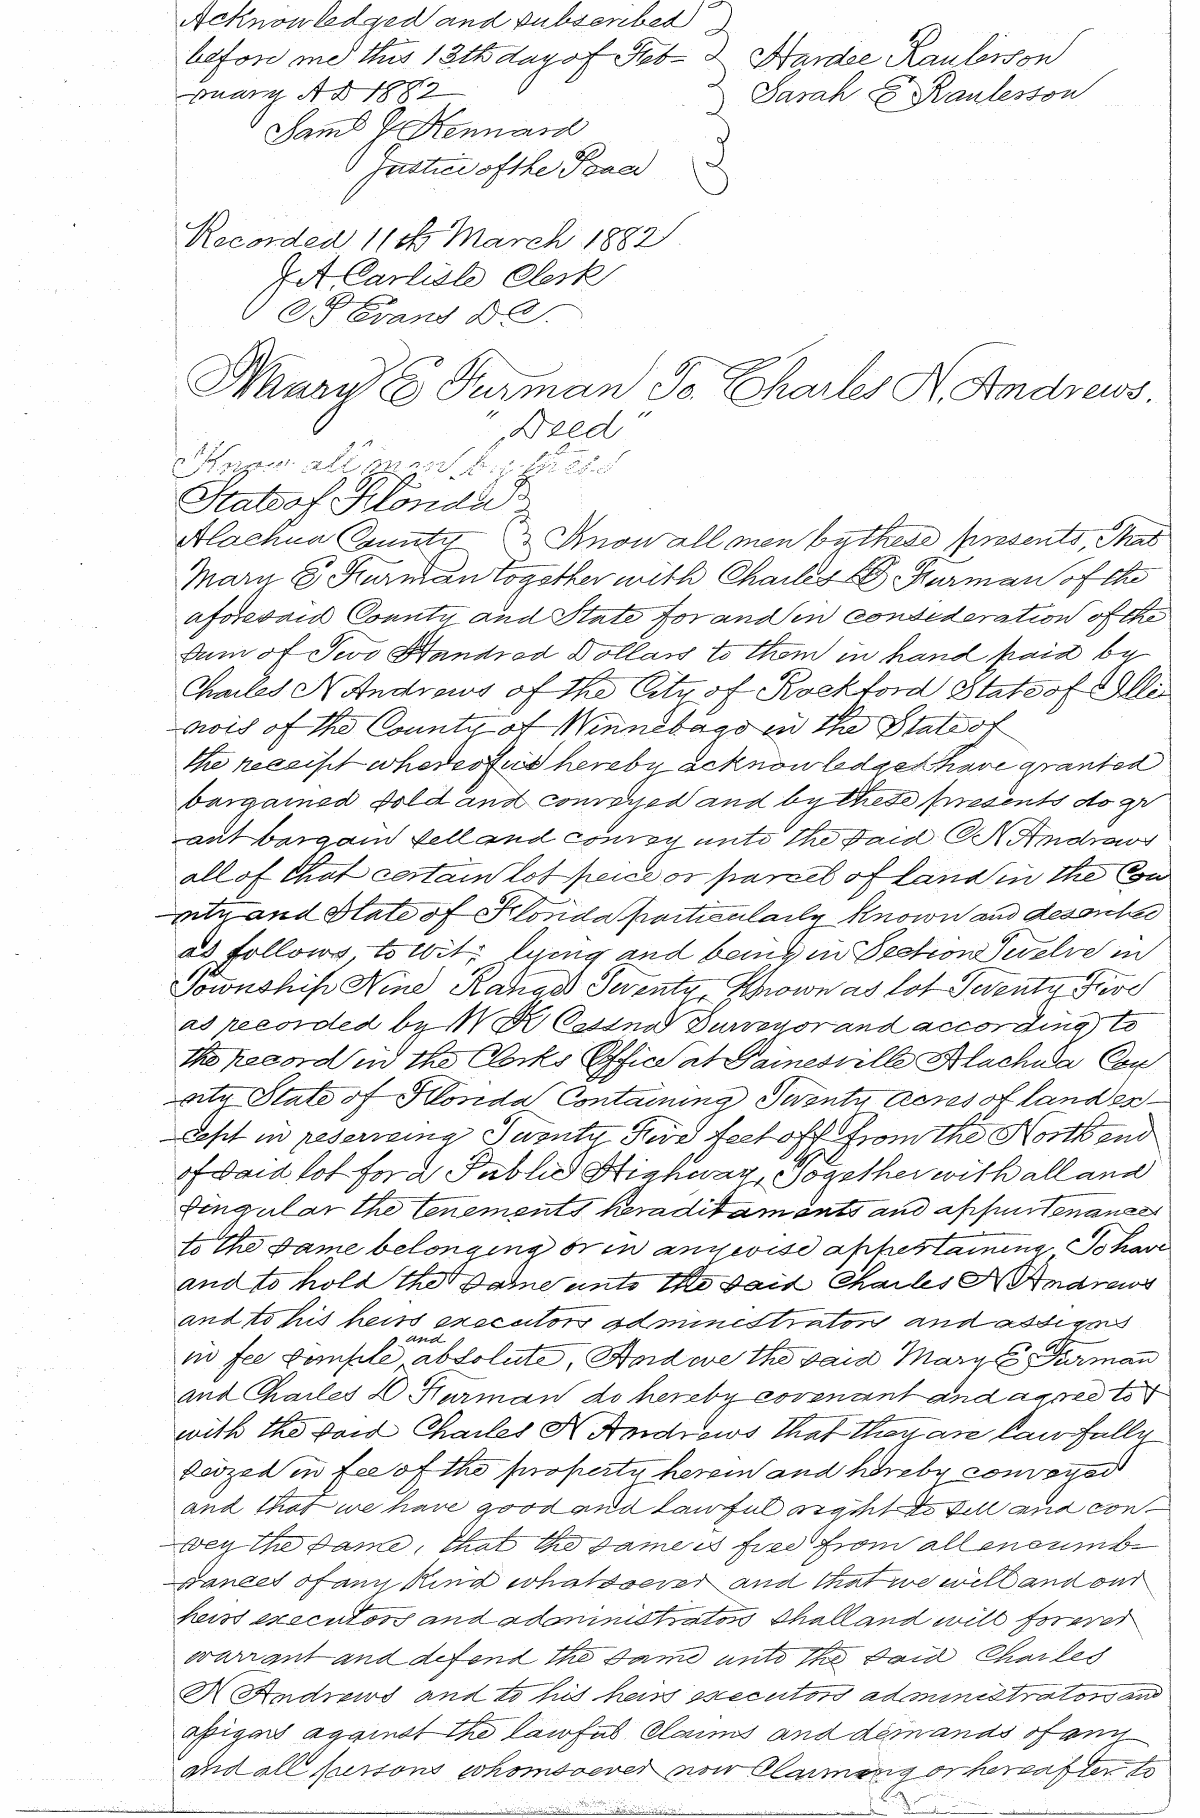 Acknowledged and subscribed
before me this 13th day of Feb=
ruary A D 1882
Hardee Raulerson
Sarah E Raulerson
Saml J Kennard
Justice of the Peace
Recorded 11th March 1882
J. A. Carlisle Clerk
C P Evans D. C.
Mary E Furman To. Charles N. Andrews.
"Deed"
Know all men by these
State of Florida
Alachua County Know all men by these presents, That
Mary E Furman together with Charles D Furman of the
aforesaid County and State for and in consideration of the
sum of Two Hundred Dollars to them in hand paid by
Charles N Andrews of the City of Rockford State of Illi
nois of the County of Winnebago in the State of
the receipt whereof is hereby acknowledged have granted
bargained sold and conveyed and by these presents do gr
ant bargain sell and convey unto the said C N Andrews
all of that certain lot peice or parcel of land in the Cou
nty and State of Florida particularly known and described
as follows, to wit; lying and being in Section Twelve in
Township Nine Range Twenty, Known as lot Twenty Five
as recorded by W K Cessna Surveyor and according to
the record in the Clerks Office at Gainesville Alachua Cou
nty State of Florida Containing Twenty acres of land ex-
cept in reserveing Twenty Five feet off from the North end
of said lot for a Public Highway, Together with all and
singular the tenements heraditaments and appurtenances
to the same belonging or in anywise appertaining, To have
and to hold the same unto the said Charles N Andrews
and to his heirs executors administrators and assigns
in fee simple and absolute, And we the said Mary E Furman
and Charles D Furman do hereby covenant and agree to &
with the said Charles N Andrews that they are lawfully
seized in fee of the property herein and hereby conveyed
and that we have good and lawful right to sell and con-
vey the same, that the same is free from all encumb=
rances of any Kind whatsoever and that we will and our
heirs executors and administrators shall and will forever
warrant and defend the same unto the said Charles
N Andrews and to his heirs executors administrators and
assigns against the lawful Claims and demands of any
and all persons whomsoever now Claiming or hereafter to